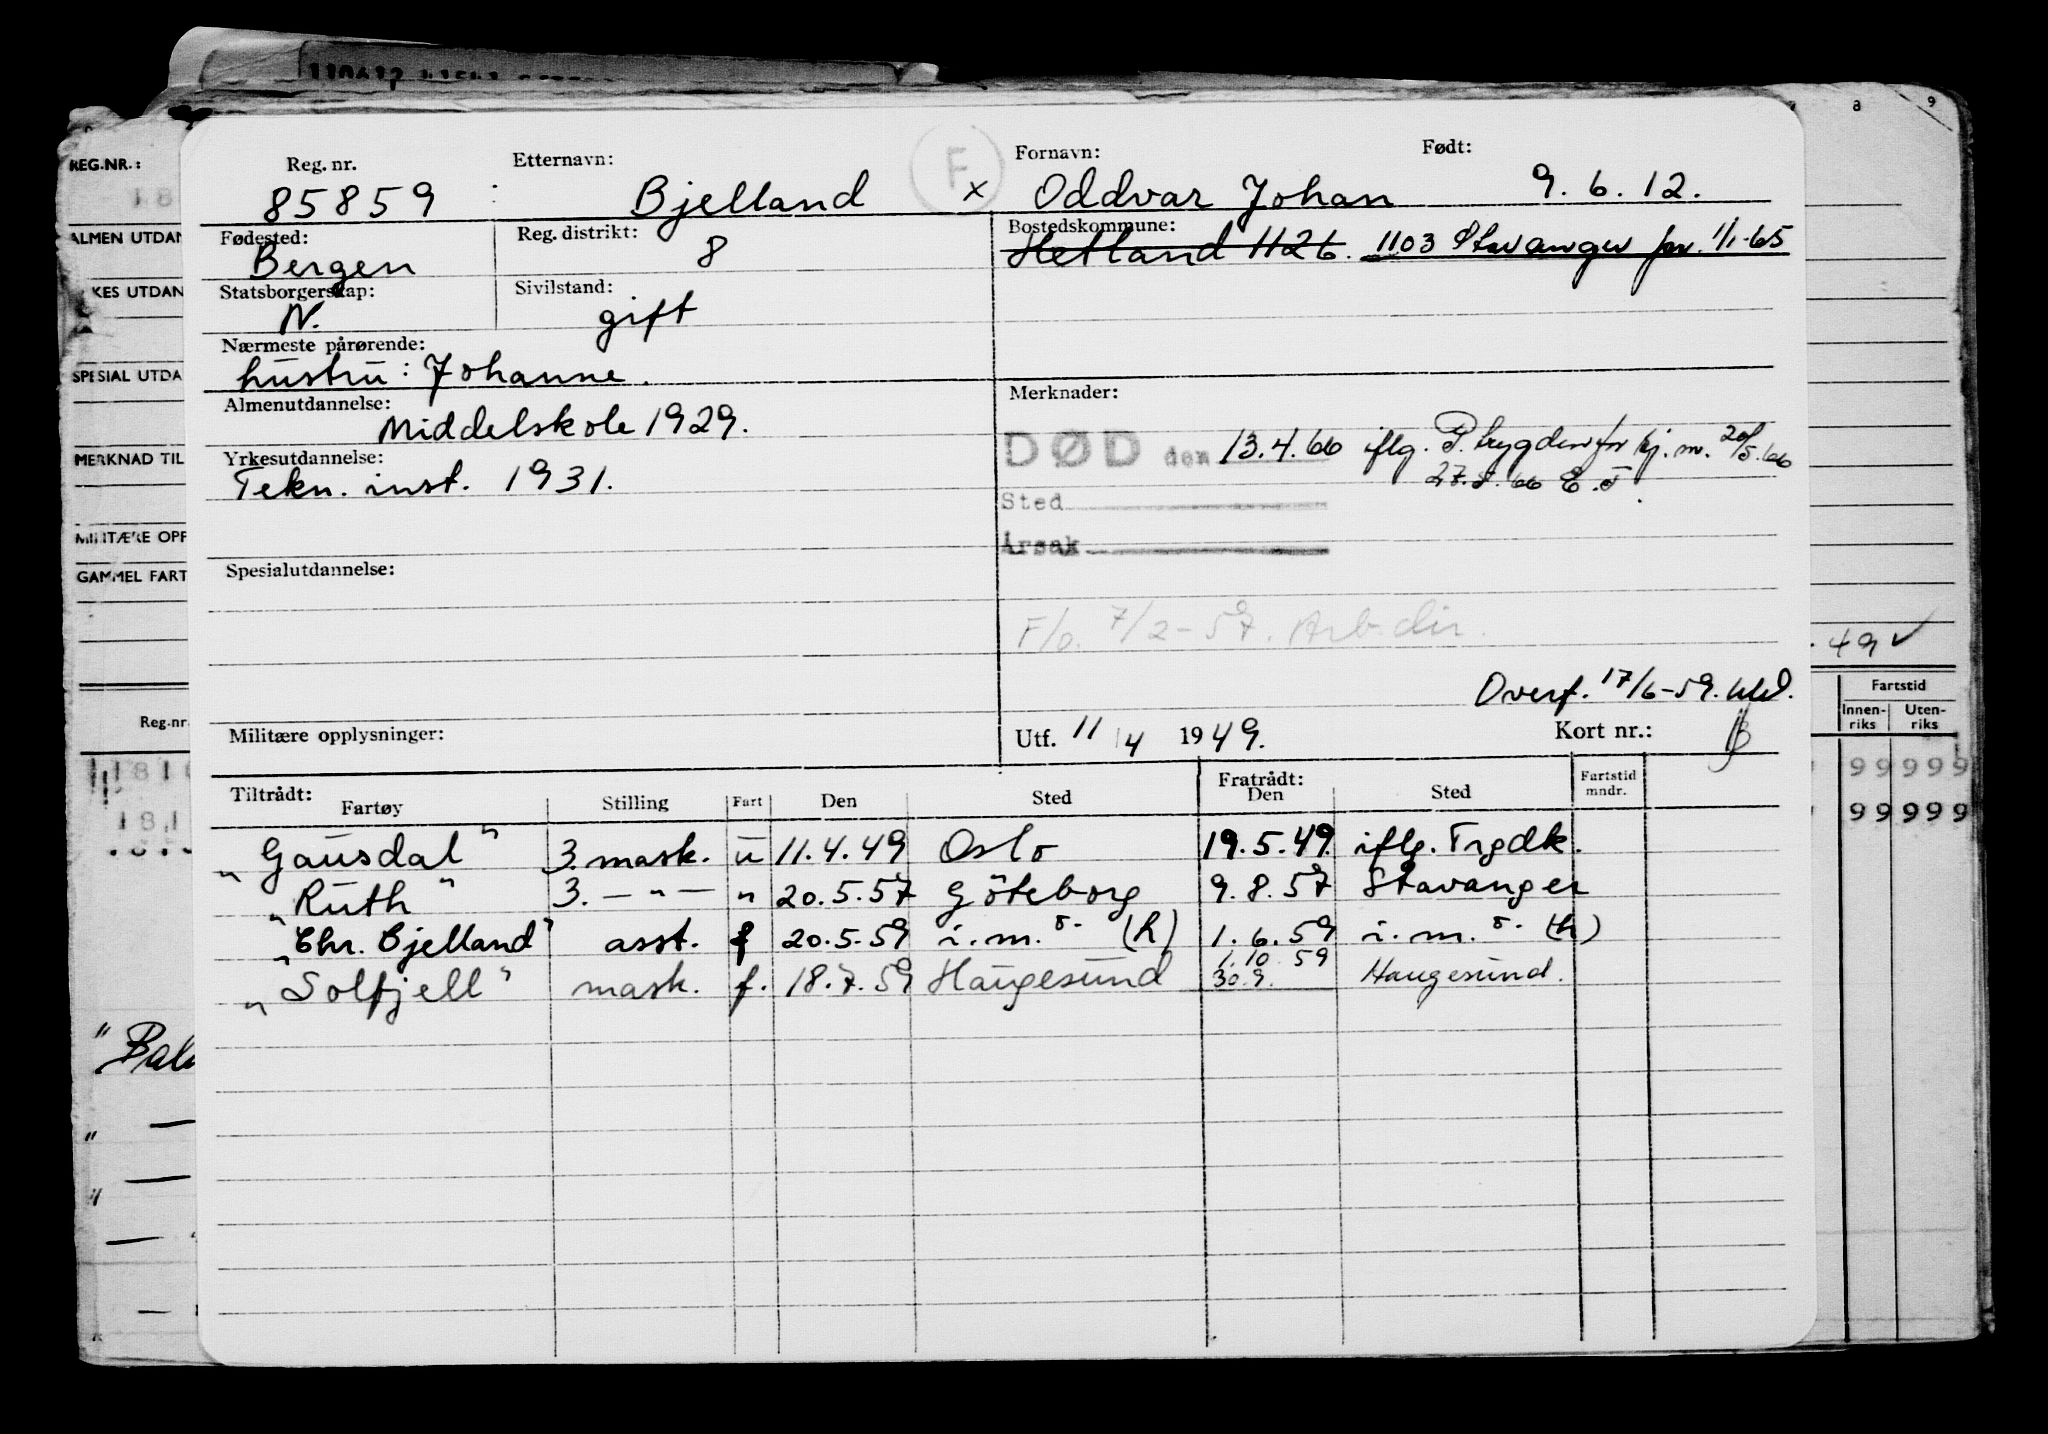 REG.NR.:
ALMEN UTDAN
KES UTDAN
SPESIAL UTDA
MERKNAD TIL
MILITÆRE OPP
GAMMEL FART
Reg.nr.
8 9
Reg. nr. Etternavn: F Fornavn: Født:
85859 Bjelland x Oddvar Johan 9.6.12.
Fødested: Reg. distrikt: Bostedskommune:
Bergen 8 Hetland 1126. 1103 Stavanger fra. 1/1-65
Statsborgerskap: Sivilstand:
N. gift
Nærmeste pårørende:
hustru: Johanne.
Almenutdannelse: Merknader:
Middelskole 1929.
DØD den 13.4.66 iflg. P. trygden for sj. m. 20/5.66
Yrkesutdannelse:
Tekn. inst. 1931. 27.8.66 E.T.
Sted
Årsak
Spesialutdannelse:
F/o. 7/2-57. Arb.dir.
49 ✓
Overf. 17/6-59.
Militære opplysninger: Utf. 11/4 1949. Kort nr.:
Fartstid
Innen-riks Uten-riks
99 999
99 999
Tiltrådt: Fratrådt:
Fartøy Stilling Fart Den Sted Den Sted Fartstid mndr.
"Gausdal" 3. mask. u 11.4.49 Oslo 19.5.49. iflg. Trgdk.
"Ruth" 3. — " — " 20.5.57 Göteborg 9.8.57 Stavanger
"Chr. Bjelland" asst. f 20.5.59 i.m.o. (h) 1.6.59 i.m.o. (h)
1.10.59
"Solfjell" mask. f. 18.7.59 Haugesund 30.9. Haugesund.